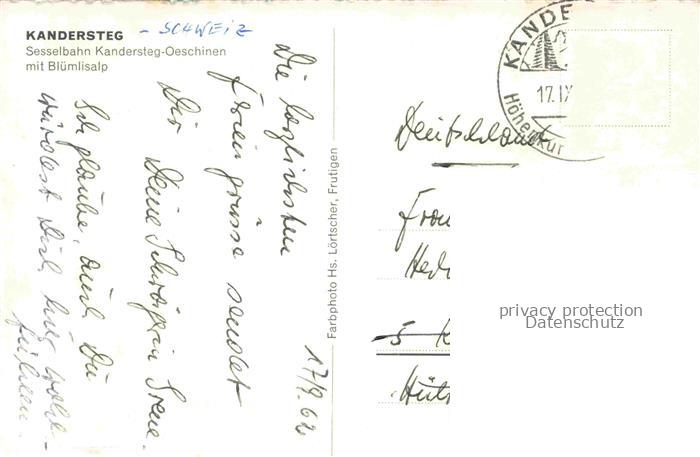 KANDERSTEG - SCHWEIZ
Sesselbahn Kandersteg-Oeschinen
mit Blümlisalp
17/9.62
Die herzlichsten
Feriengrüsse sendet
Dir Deine Schwägerin Irene.
Ich glaube, auch Du
würdest Dich hier wohl-
fühlen.
Farbphoto Hs. Lörtscher, Frutigen
KANDE
17.IX
Höhenkur
Deutschland
Frau
5 K
privacy protection
Datenschutz